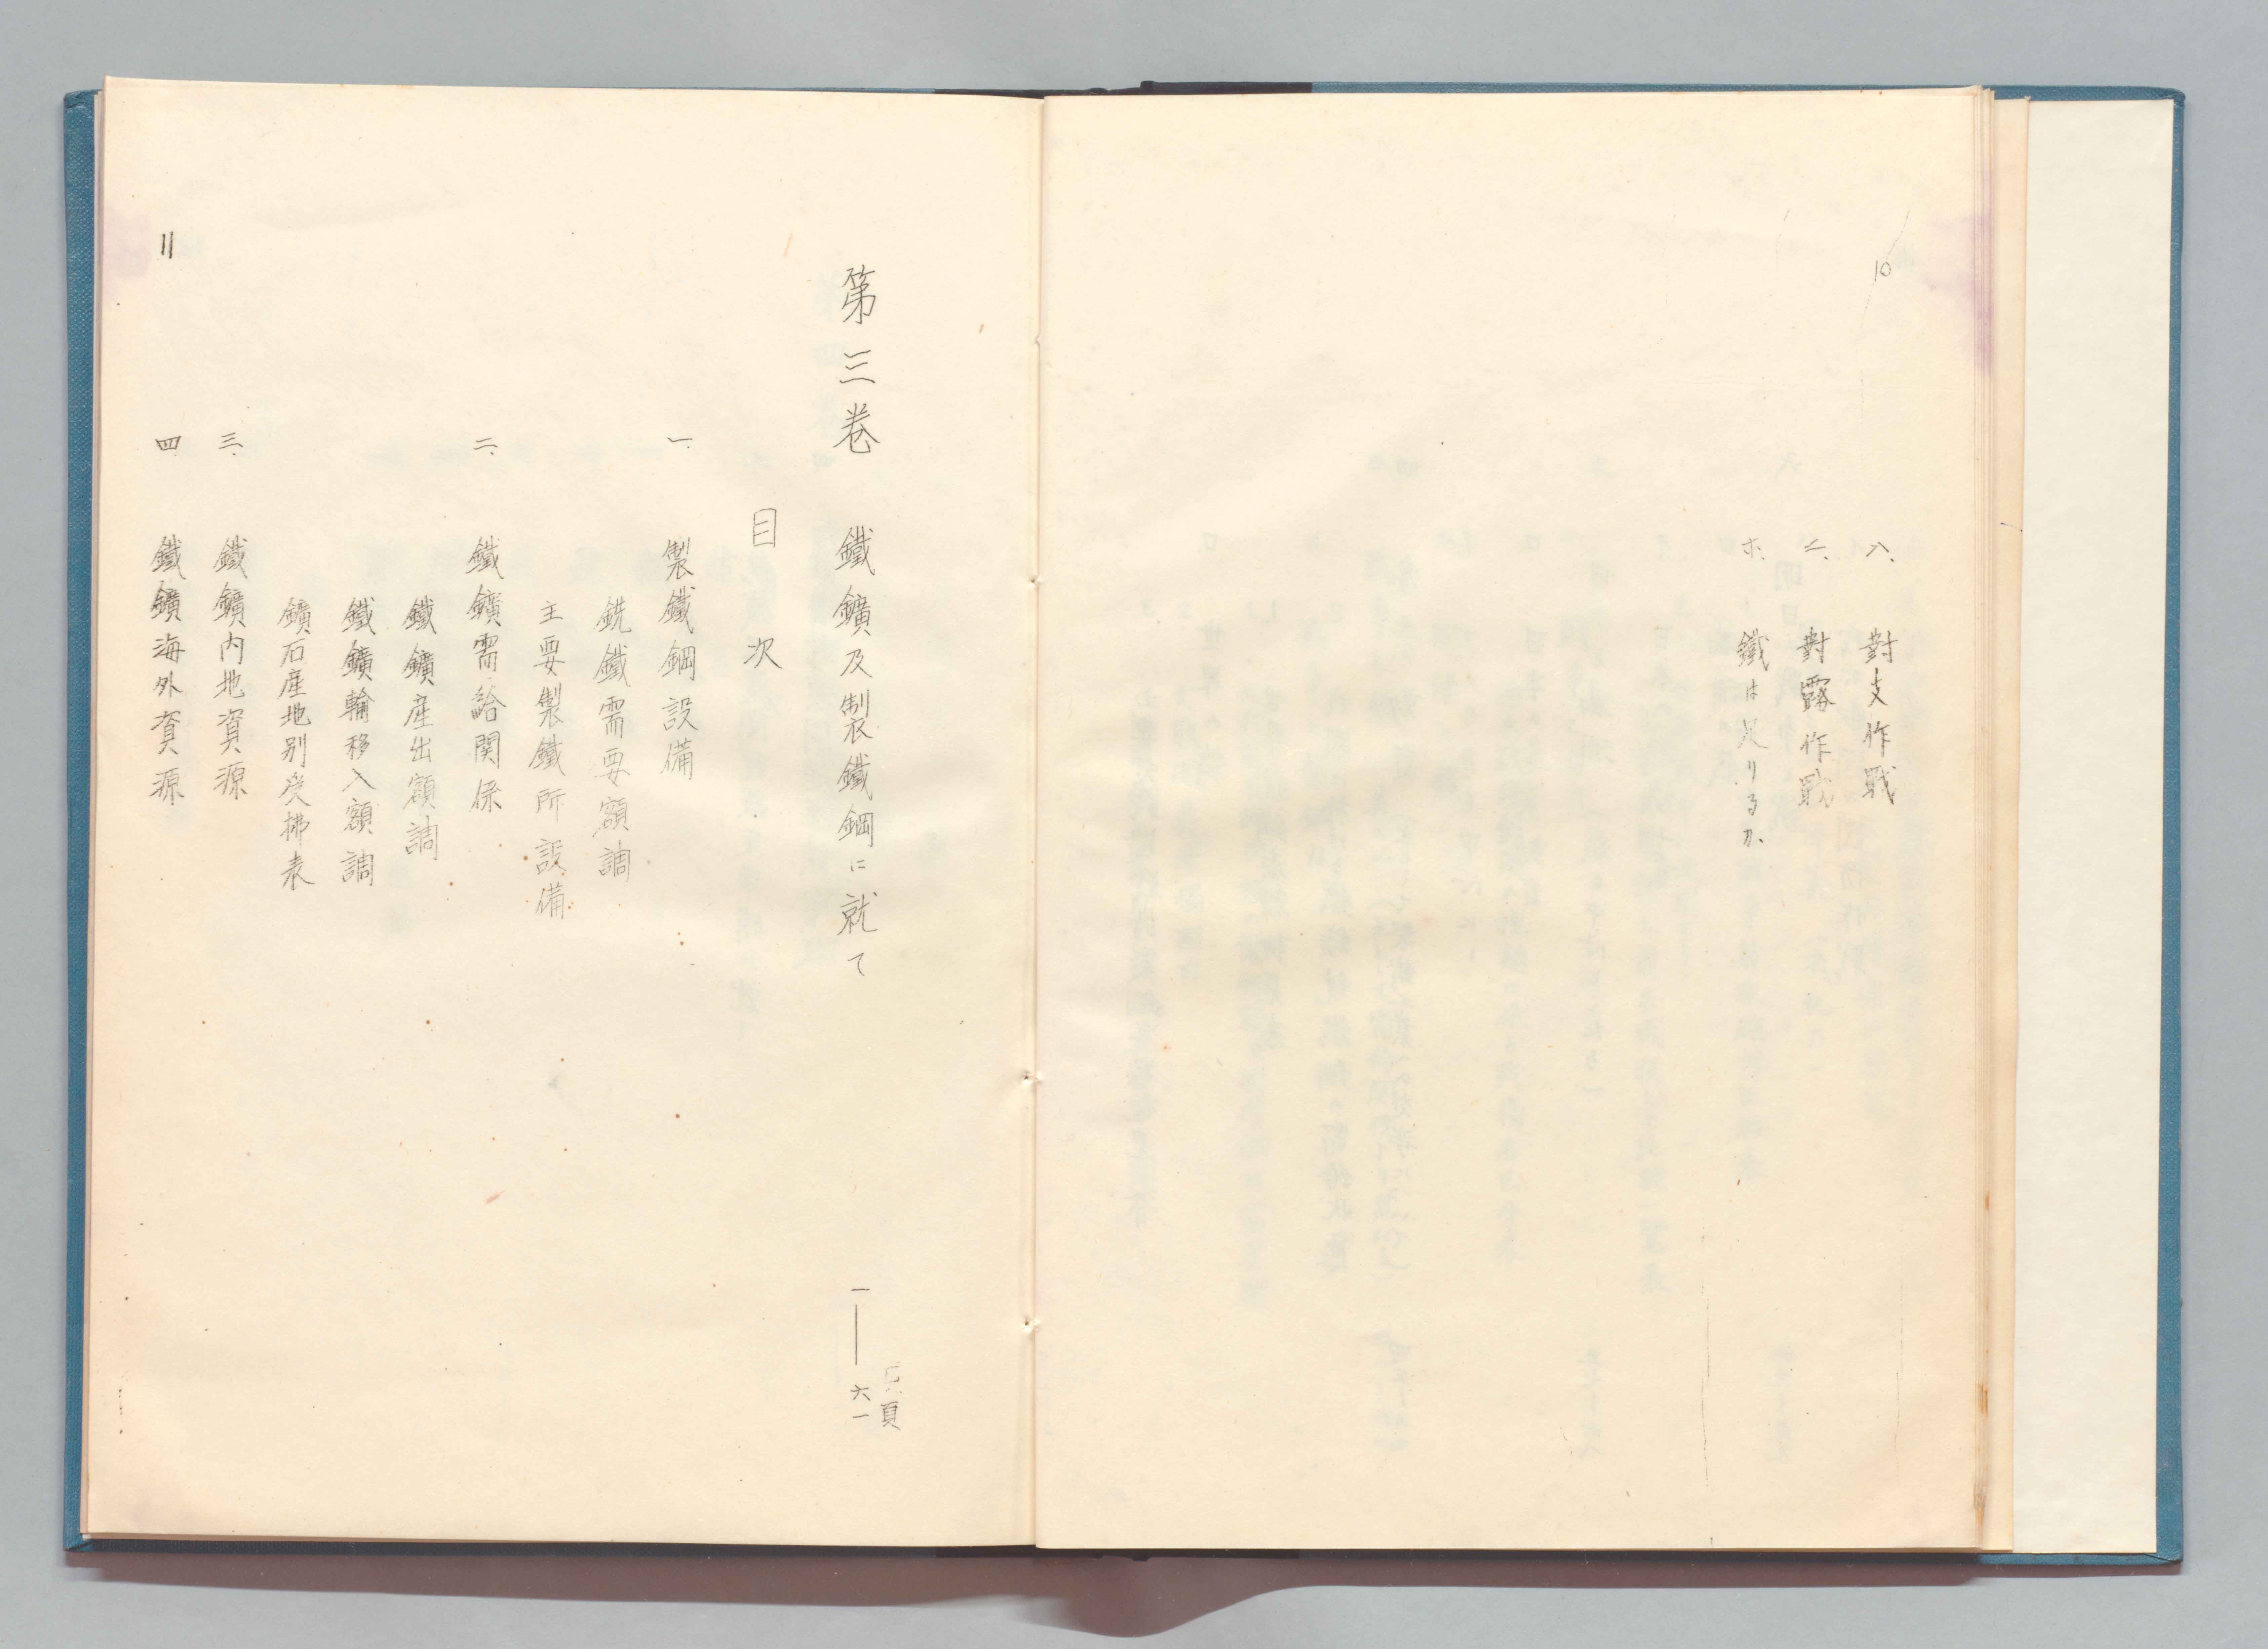 10
ハ、對支作戰
ニ、對露作戰
ホ、鐵は足りるか、
第三卷 鐵鑛及製鐵鋼に就て 一——六一頁
目次
一、製鐵鋼設備
銑鐵需要額調
主要製鐵所設備
二、鐵鑛需給関係
鐵鑛産出額調
鐵鑛輸移入額調
鑛石産地別受拂表
三、鐵鑛内地資源
四、鐵鑛海外資源
11